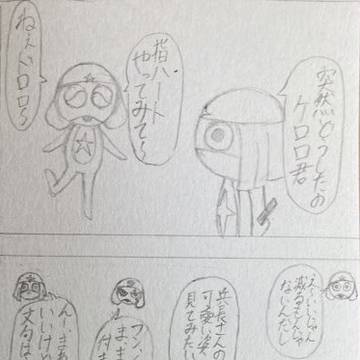 突然どうしたの
ケロロ君
指ハート
やってみて〜
ねぇドロロ〜
え〜いいじゃん
減るもんじゃ
ないんだし
兵長さんの
可愛い姿
見てみたい
まま
んー、まあ
いいけど
文句は